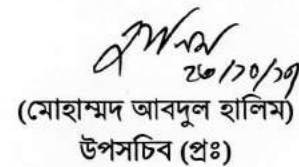 ২৬/১০/১৭
(মোহাম্মদ আবদুল হালিম)
উপসচিব (প্রঃ)